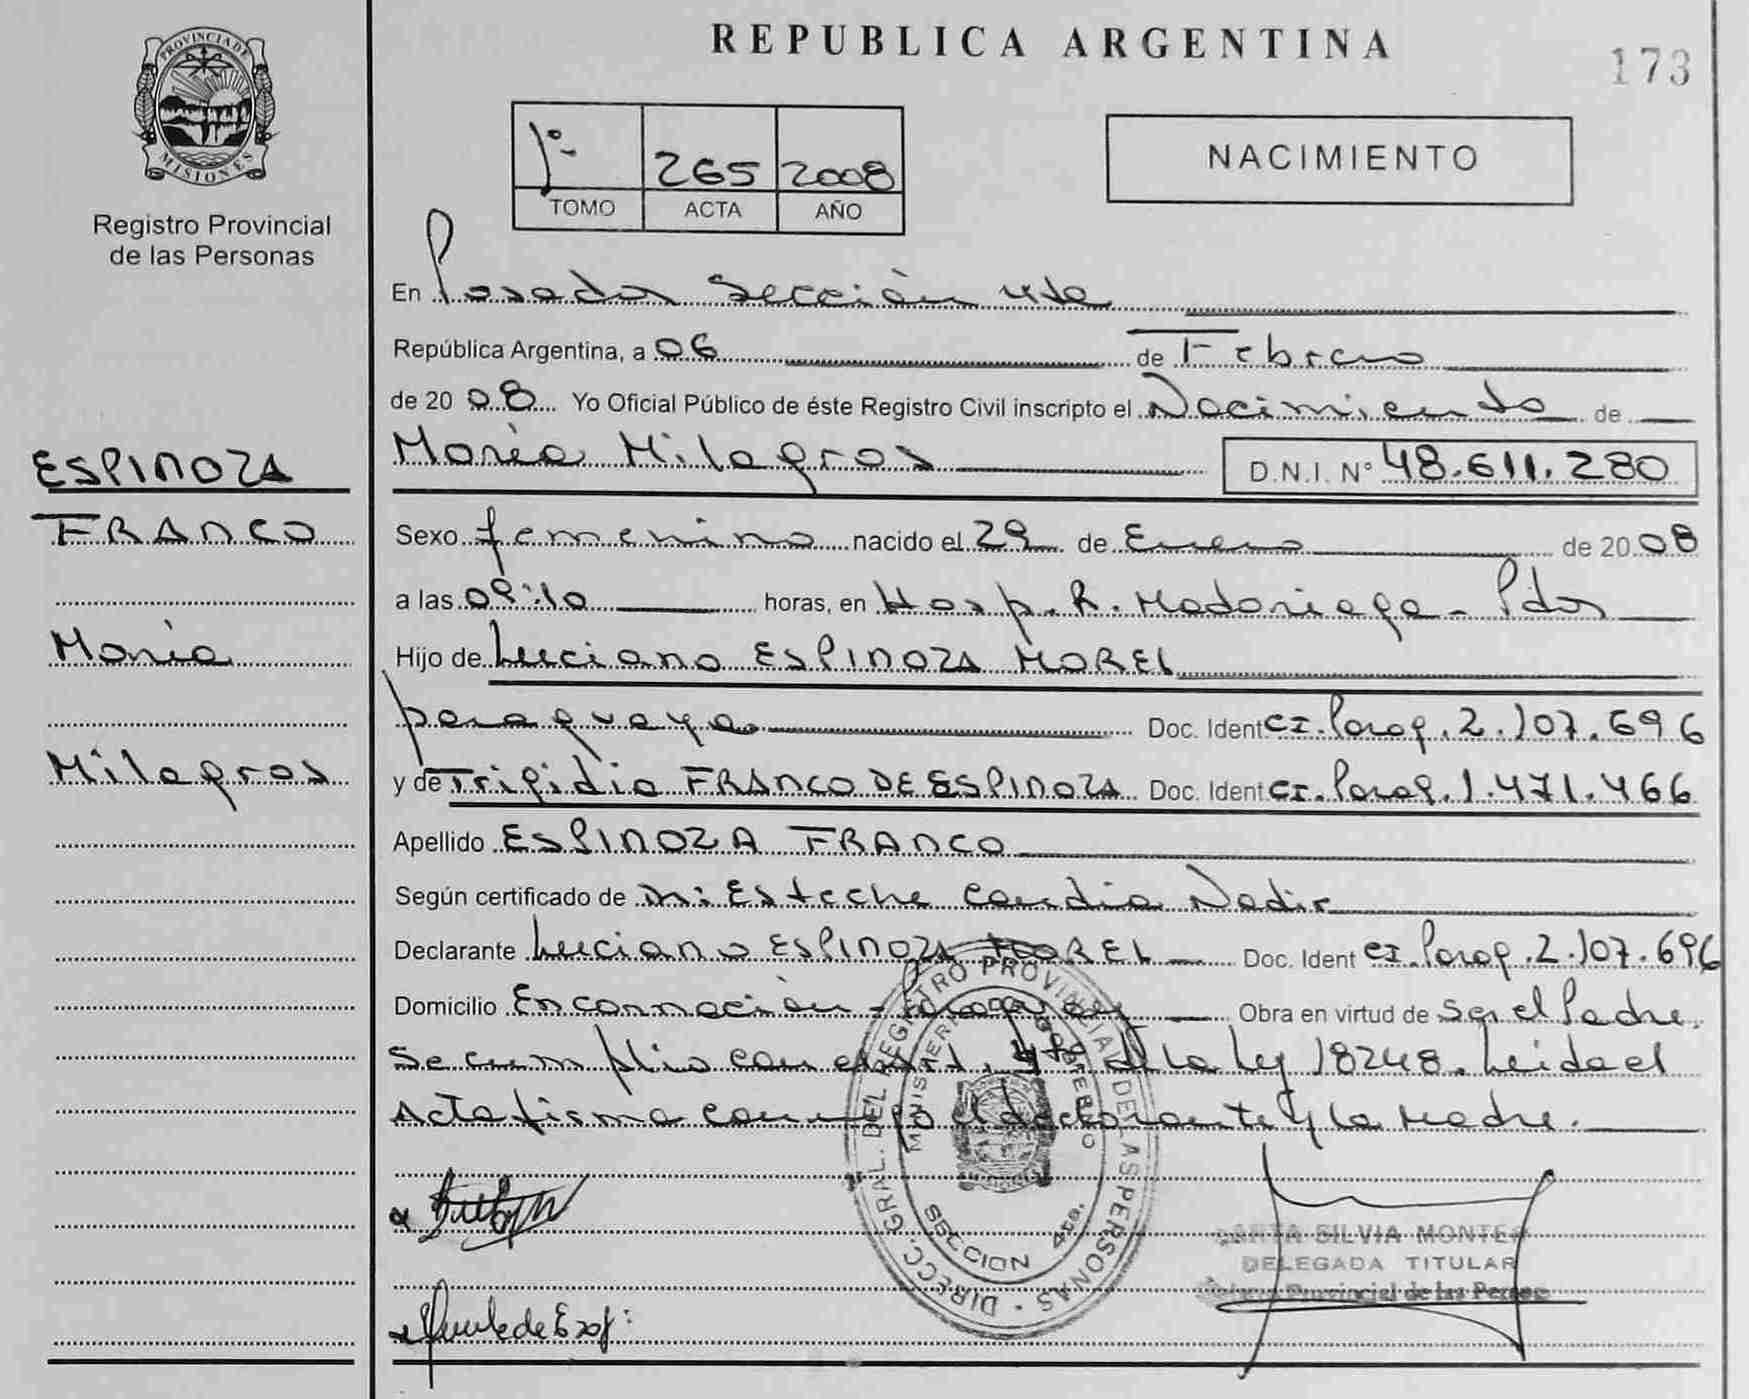 PROVINCIA DE
MISIONES
Registro Provincial
de las Personas
ESPINOZA
FRANCO
María
Milagros
REPUBLICA ARGENTINA
173
1º 265 2008
TOMO ACTA AÑO
NACIMIENTO
En Posadas Sección 4ta
República Argentina, a 06 de Febrero
de 20 08 Yo Oficial Público de éste Registro Civil inscripto el Nacimiento de
María Milagros D.N.I. Nº 48.611.280
Sexo femenino nacido el 29 de Enero de 20 08
a las 09:10 horas, en Hosp. R. Madariaga - Pdas
Hijo de Luciano ESPINOZA MOREL
paraguaya Doc. Ident CI. Parag. 2.107.696
y de Trifidia FRANCO DE ESPINOZA Doc. Ident CI. Parag. 1.471.466
Apellido ESPINOZA FRANCO
Según certificado de Esteche Nadir
Declarante Luciano ESPINOZA MOREL Doc. Ident CI. Parag. 2.107.696
Domicilio Encarnación - Paraguay Obra en virtud de ser el Padre.
Se cumplio con el Art. 4to de la Ley 18248. Leida el
Acta firma conmigo el declarante y la Madre.
DIRECC. GRAL. DEL REGISTRO PROVINCIAL DE LAS PERSONAS
SECCION 4ta.
SILVIA MONTE
DELEGADA TITULAR
Provincial de las Person